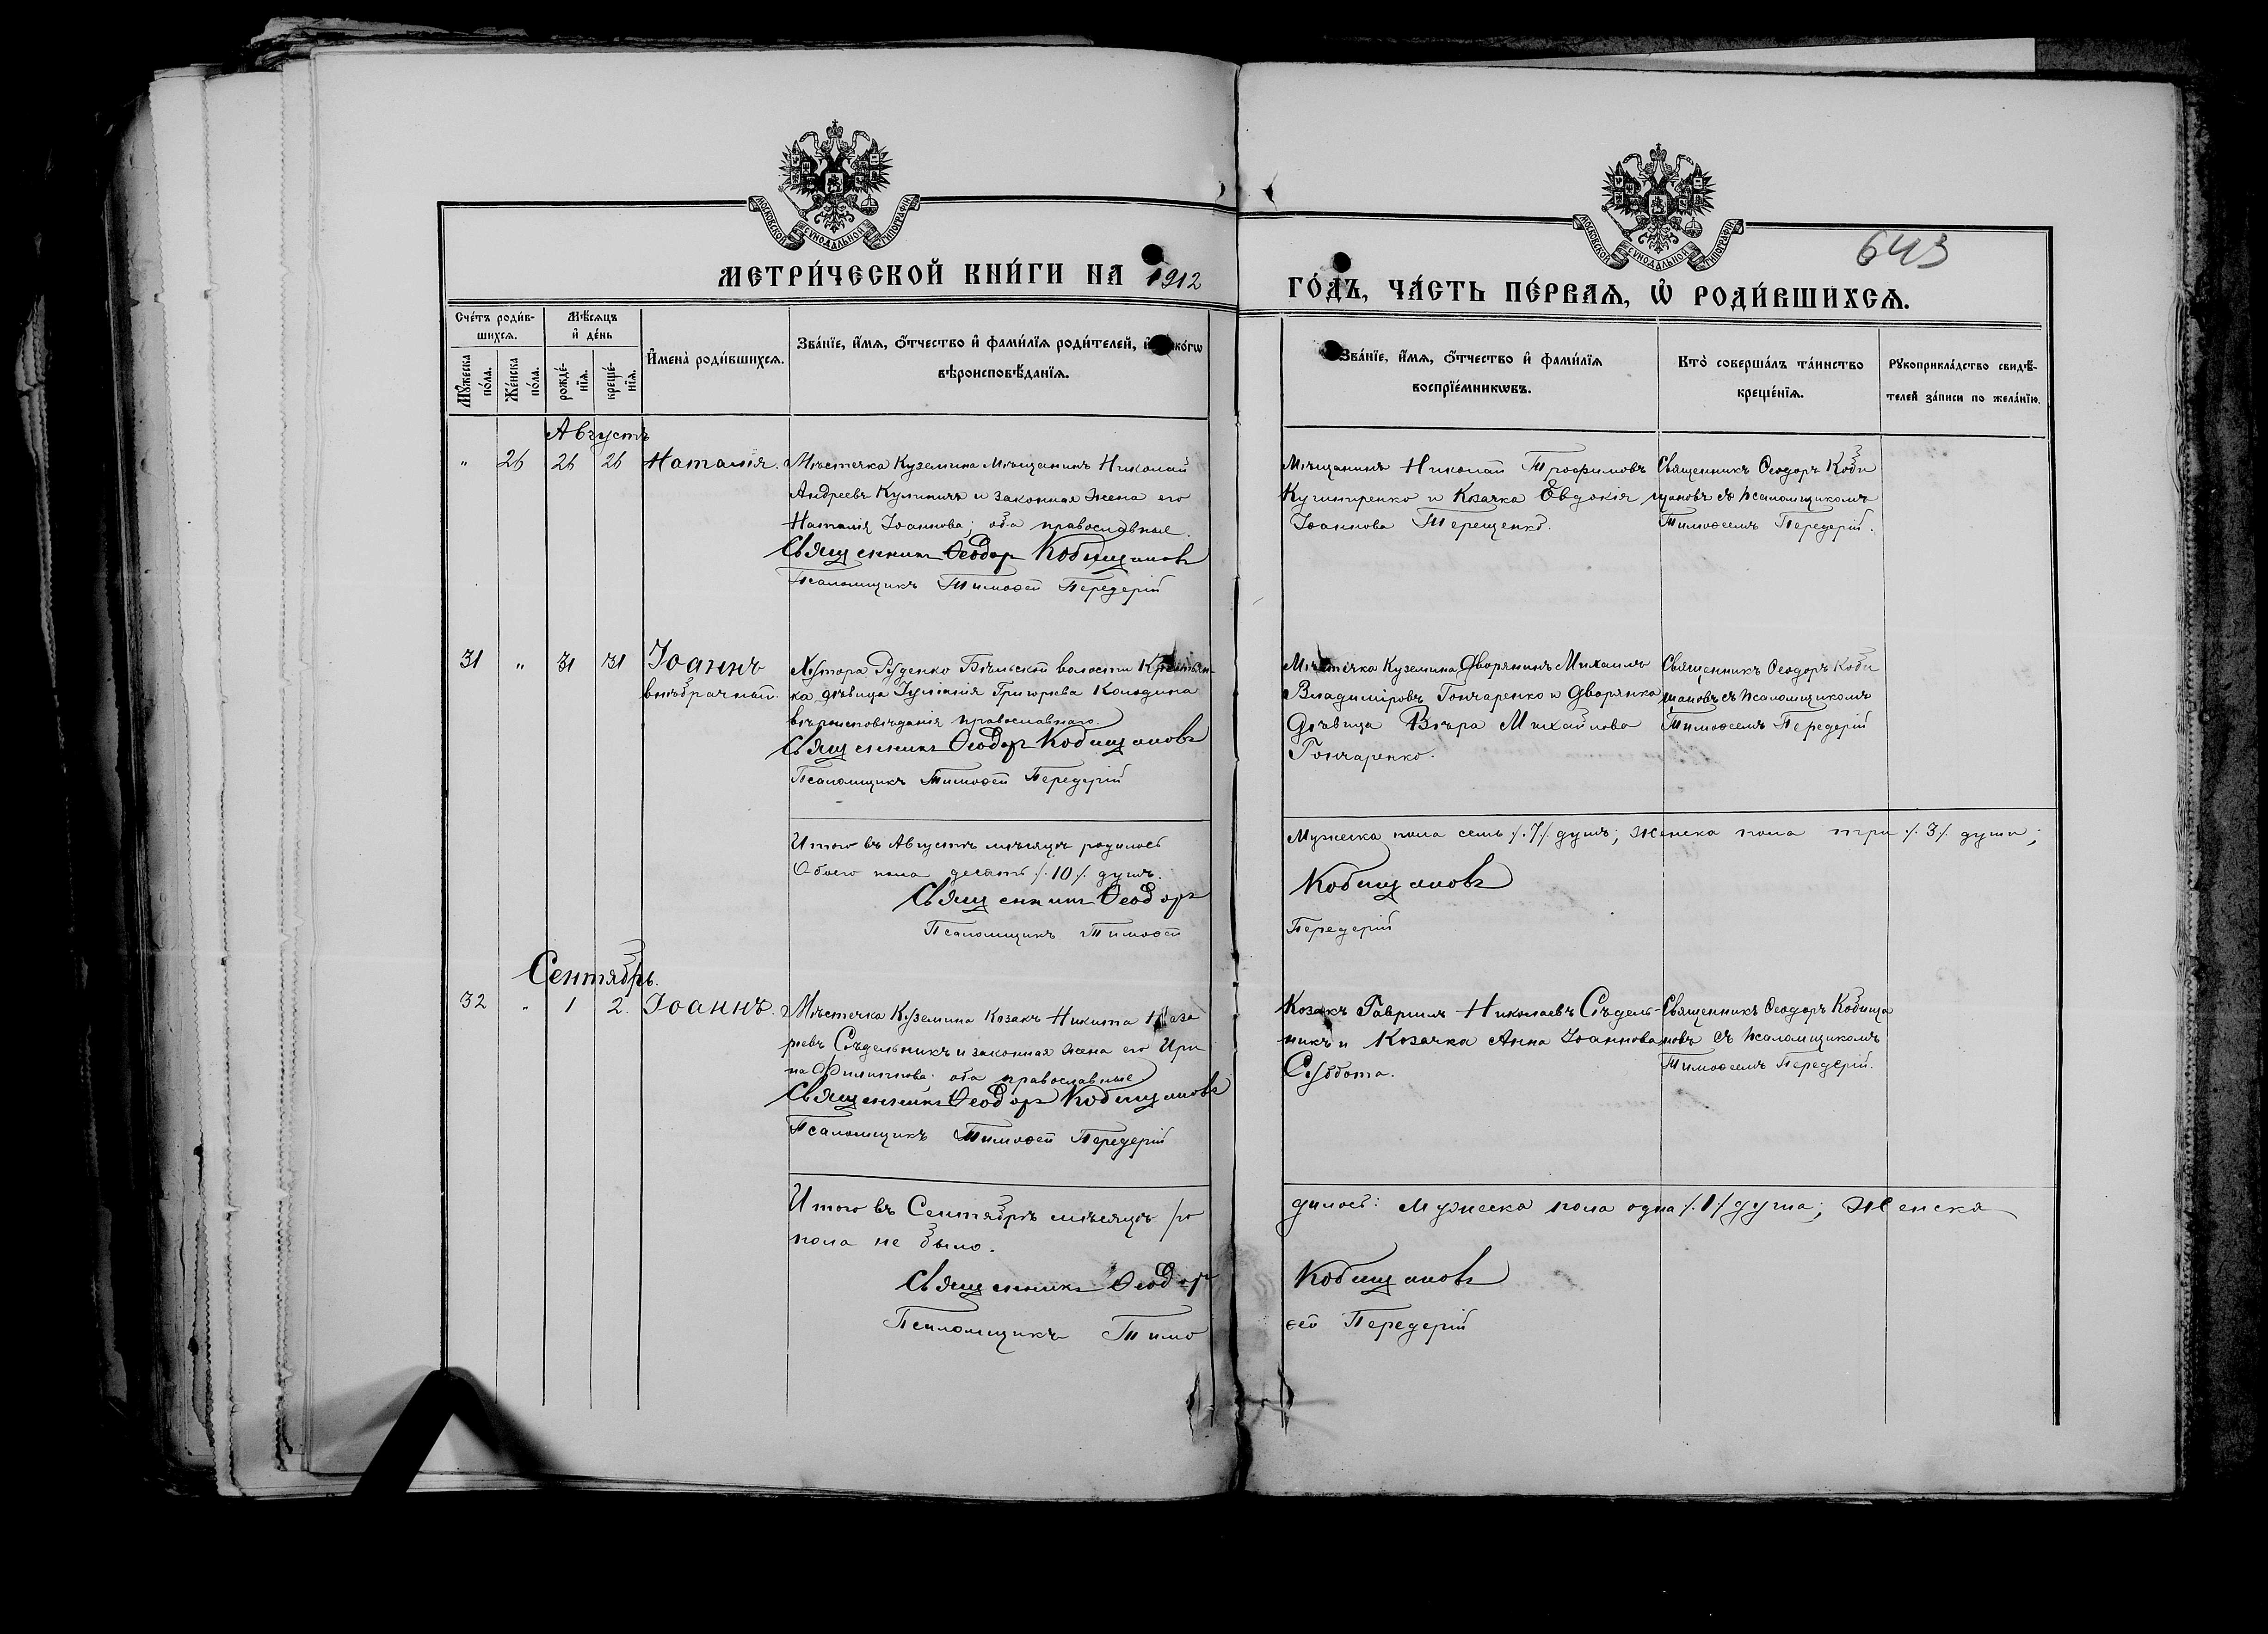 МОСКОВСКОЙ СѴНОДАЛЬНОЙ ТИПОГРАФІИ
МОСКОВСКОЙ СѴНОДАЛЬНОЙ ТИПОГРАФІИ
643
МЕТРИ́ЧЕСКОЙ КНИ́ГИ НА 1912
ГО́ДЪ, ЧА́СТЬ ПЕ́РВАѦ, Ѡ҆ РОДИ́ВШИХСѦ.
Сче́тъ роди́в-
шихсѧ.
Мꙋ́жеска по́ла.
Же́нска по́ла.
Мѣ́сѧцъ
и҆ де́нь
рожде́-
нїѧ.
креще́-
нїѧ.
И҆мена̀ роди́вшихсѧ.
Зва́нїе, и҆́мѧ, ѻ҆́тчество и҆ фами́лїѧ роди́телей, и҆ како́гѡ
вѣроисповѣ́данїѧ.
Зва́нїе, и҆́мѧ, ѻ҆́тчество и҆ фами́лїѧ
воспрїе́мникѡвъ.
Кто̀ соверша́лъ та́инство
креще́нїѧ.
Рꙋкоприкла́дство свидѣ́-
телей за́писи по жела́нїю.
Августъ
" 26 26 26 Наталія.
Мѣстечка Куземина Мѣщанинъ Николай
Андреевъ Кулиничъ и законная жена его
Наталія Іоаннова; оба православные.
Священникъ Ѳеодоръ Кобищановъ
Псаломщикъ Тимоѳей Передерій
Мѣщанинъ Николай Трофимовъ
и Козачка Евдокія
Іоаннова Терещенко.
Священникъ Ѳеодоръ Коби
щановъ съ псаломщикомъ
Тимоѳеемъ Передерій.
31 " 31 31 Іоаннъ
внѣбрачный.
Хутора Руденко Бѣльской волости Крестьян-
ка дѣвица Іуліанія Григорьева Колодина
вѣроисповѣданія православнаго.
Священникъ Ѳеодоръ Кобищановъ
Псаломщикъ Тимоѳей Передерій
Мѣстечка Куземина Дворянинъ Михаилъ
Владиміровъ Гончаренко и Дворянка
Дѣвица Вѣра Михайлова
Гончаренко.
Священникъ Ѳеодоръ Коби
щановъ съ псаломщикомъ
Тимоѳеемъ Передерій
Итого въ Августѣ мѣсяцѣ родилось
Обоего пола десять ./.10./. душъ.
Священникъ Ѳеодоръ
Псаломщикъ Тимоѳей
Мужеска пола семь ./.7./. душъ; Женска пола три ./.3./. души;
Кобищановъ
Передерій
Сентябрь.
32 " 1 2. Іоаннъ.
Мѣстечка Куземина Козакъ Никита Наза
рьевъ Сѣдельникъ и законная жена его Ири
на Филиппова; оба православные
Священникъ Ѳеодоръ Кобищановъ
Псаломщикъ Тимоѳей Передерій
Козакъ Гавріилъ Николаевъ Сѣдель-
никъ и Козачка Анна Іоаннова
Суббота.
Священникъ Ѳеодоръ Кобища
новъ съ псаломщикомъ
Тимоѳеемъ Передерій.
Итого въ Сентябрѣ мѣсяцѣ ро
пола не было.
Священникъ Ѳеодоръ
Псаломщикъ Тимо
дилось: Мужеска пола одна ./.1./. душа; Женска
Кобищановъ
ѳей Передерій